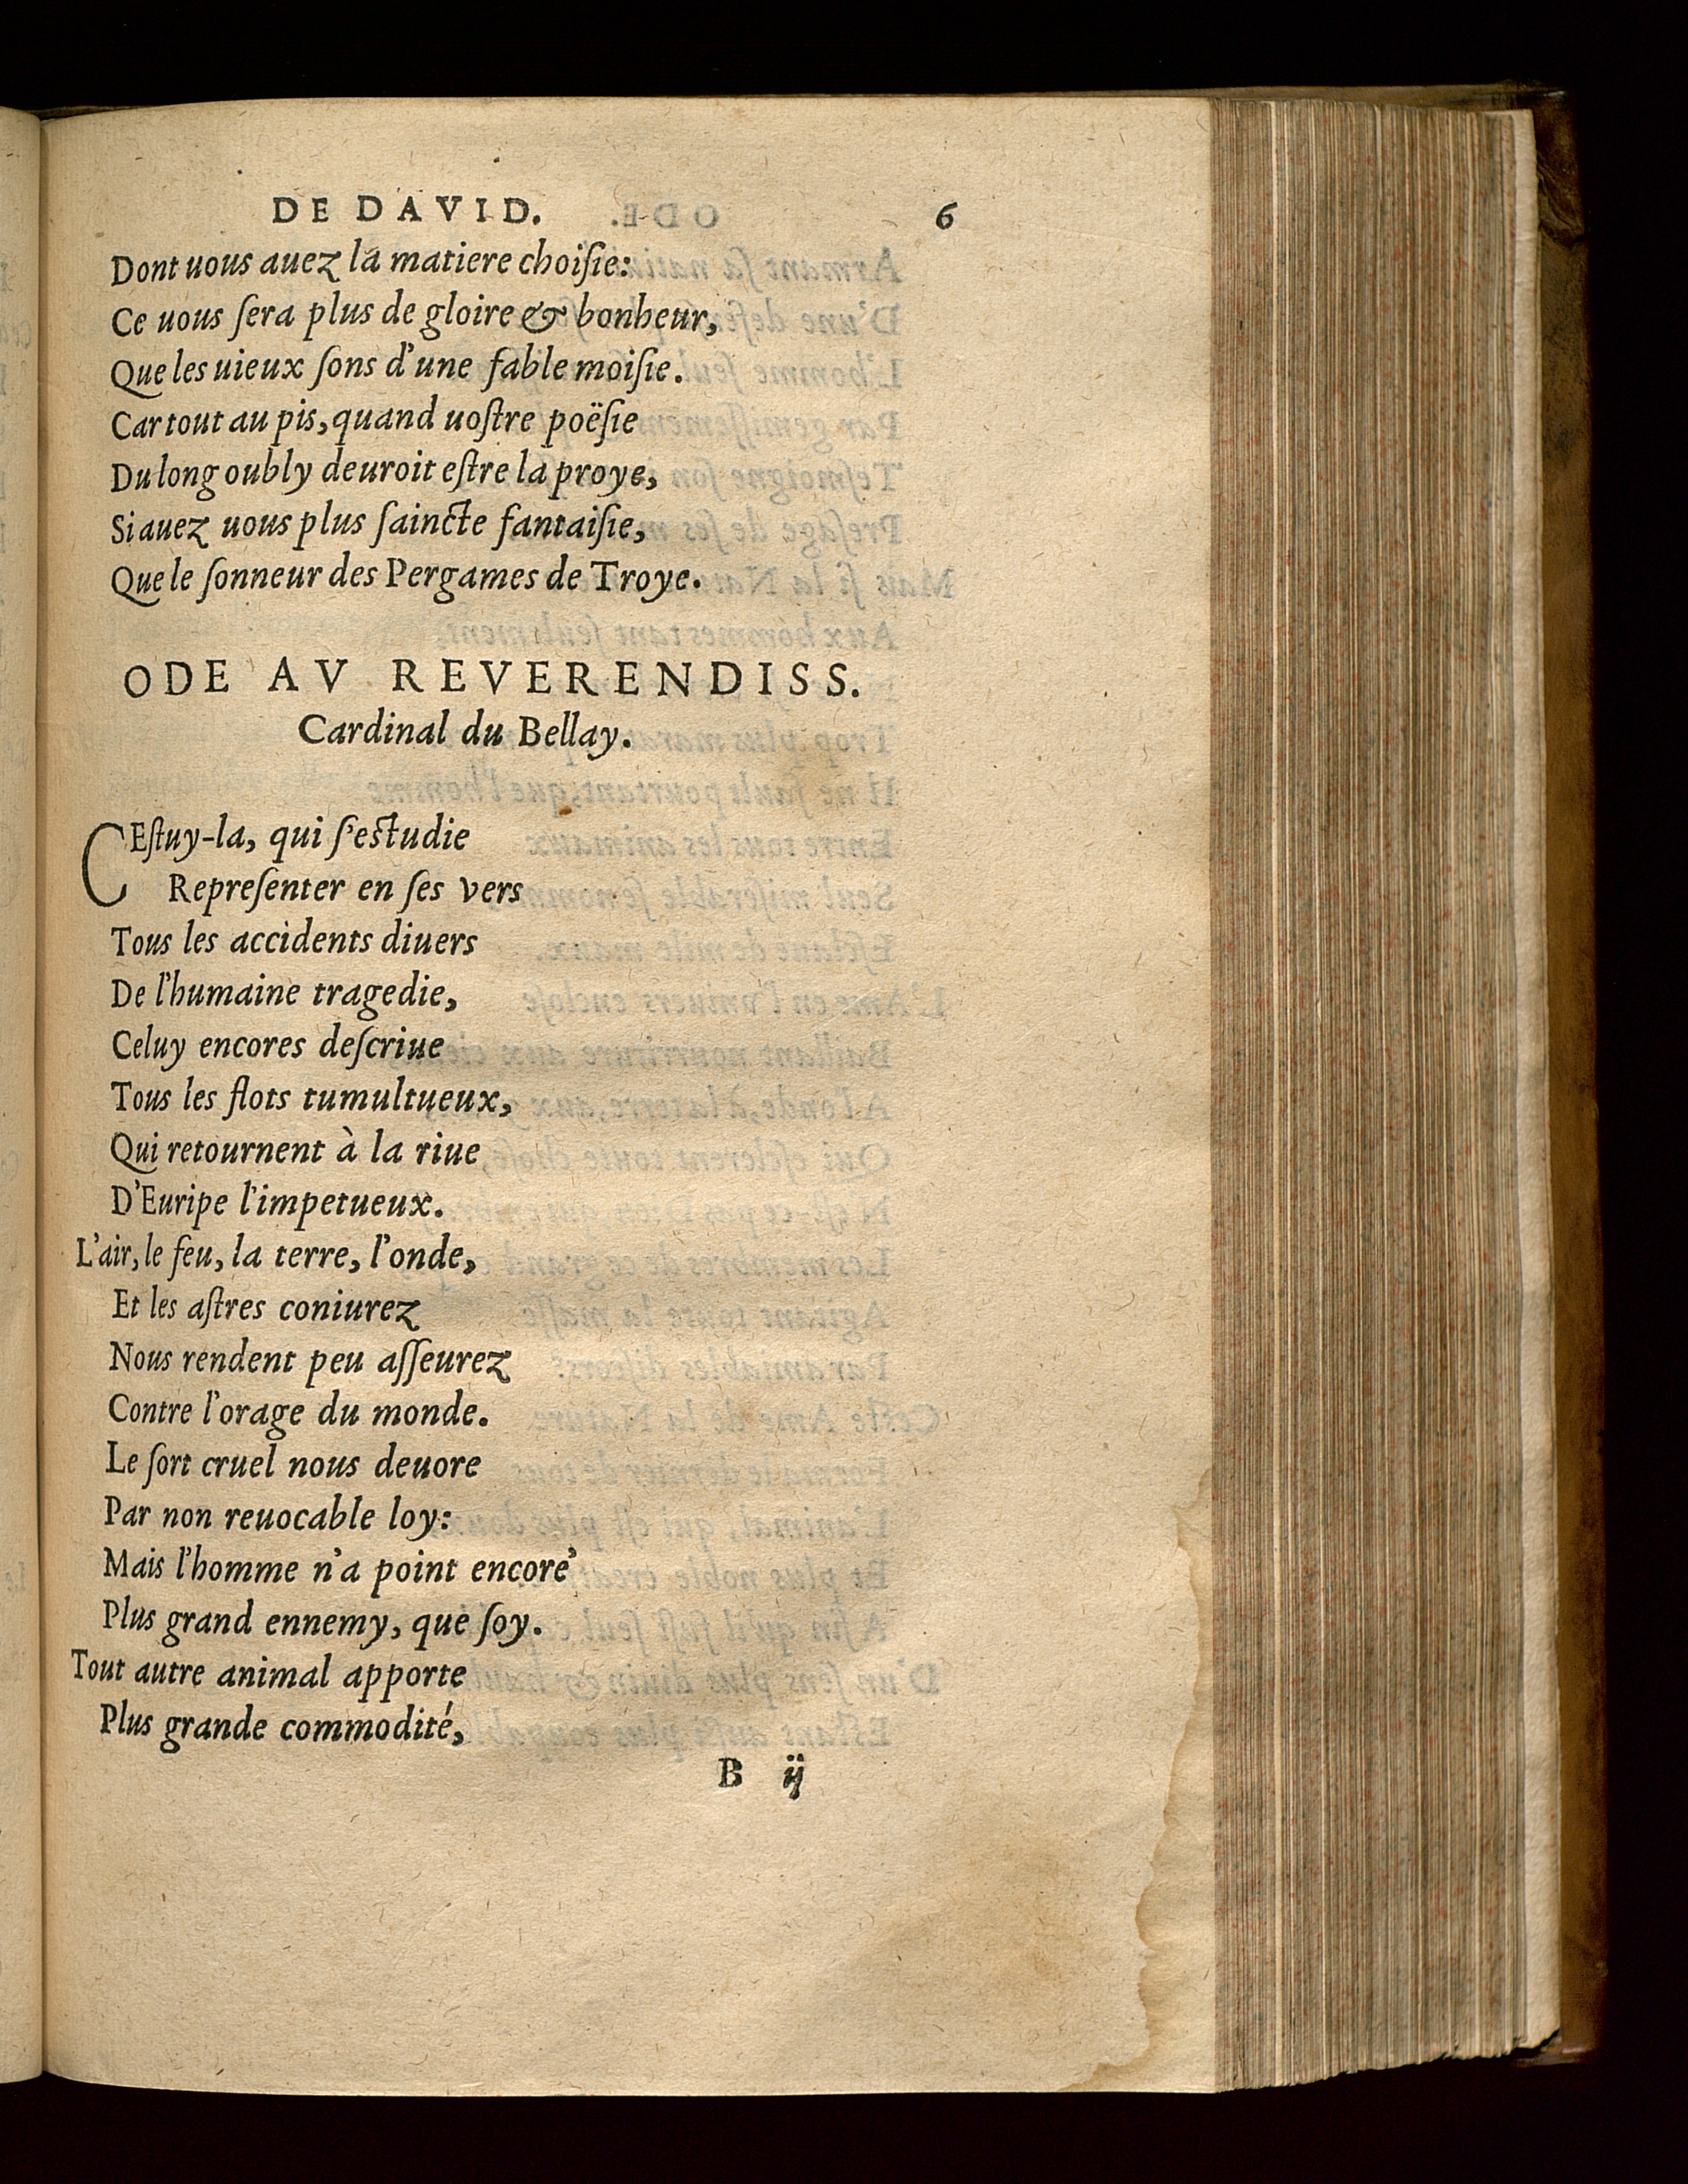 DE DAVID. 6
Dont uous auez la matiere choiſie:
Ce uous ſera plus de gloire & bonheur,
Que les uieux ſons d'une fable moiſie.
Car tout au pis, quand uoſtre poëſie
Du long oubly deuroit eſtre la proye,
Si auez uous plus ſaincte fantaiſie,
Que le ſonneur des Pergames de Troye.
ODE AV REVERENDISS.
Cardinal du Bellay.
CEſtuy-la, qui ſ'eſtudie
Repreſenter en ſes vers
Tous les accidents diuers
De l'humaine tragedie,
Celuy encores deſcriue
Tous les flots tumultueux,
Qui retournent à la riue
D'Euripe l'impetueux.
L'air, le feu, la terre, l'onde,
Et les aſtres coniurez
Nous rendent peu aſſeurez
Contre l'orage du monde.
Le ſort cruel nous deuore
Par non reuocable loy:
Mais l'homme n'a point encore'
Plus grand ennemy, que ſoy.
Tout autre animal apporte
Plus grande commodité,
B ij